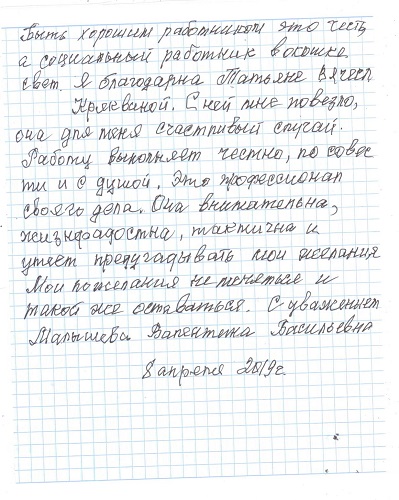 Быть хорошим работником это честь
а социальный работник в окошке
свет. Я благодарна Татьяне Вячесл
Кряквиной. С ней мне повезло,
она для меня счастливый случай.
Работу выполняет честно, по совес
ти и с душой. Это профессионал
своего дела. Она внимательна,
жизнерадостна, тактична и
умеет предугадывать мои желания
Мои пожелания не меняться и
такой же оставаться. С уважением
Малышева Валентина Васильевна
8 апреля 2019г